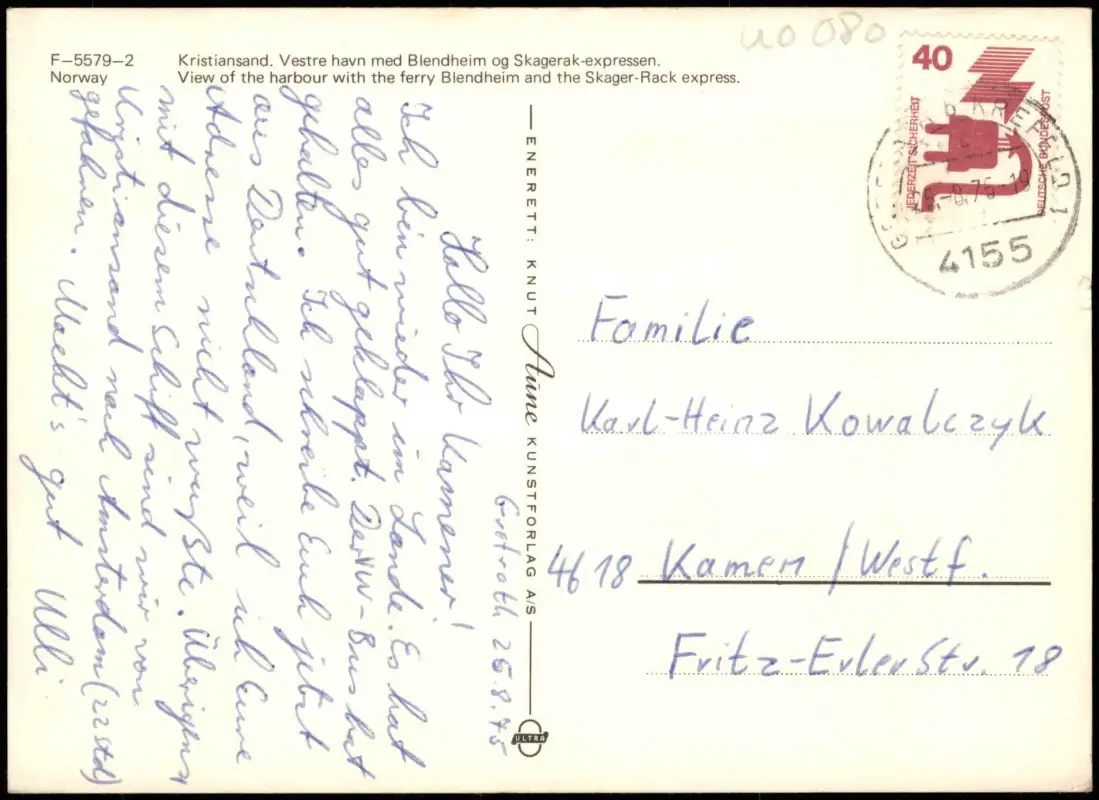 F–5579–2 Kristiansand. Vestre havn med Blendheim og Skagerak-expressen.
Norway View of the harbour with the ferry Blendheim and the Skager-Rack express.
Grefrath 25.8.75
Hallo Ihr Kamener!
Ich bin wieder im Lande. Es hat
alles gut geklappt. Der VW-Bus hat
gehalten. Ich schreibe Euch jetzt
aus Deutschland, weil ich Eure
Adresse nicht wußte. Übrigens
mit diesem Schiff sind wir von
Kristiansand nach Amsterdam (22 Std)
gefahren. Macht's gut Ulli
ENERETT: KNUT Aune KUNSTFORLAG A/S
ULTRA
uo 080
40
JEDERZEIT SICHERHEIT
DEUTSCHE BUNDESPOST
KREFELD 1
-8.75-19
4155
Familie
Karl-Heinz Kowalczyk
4618 Kamen / Westf.
Fritz-Erler Str. 18